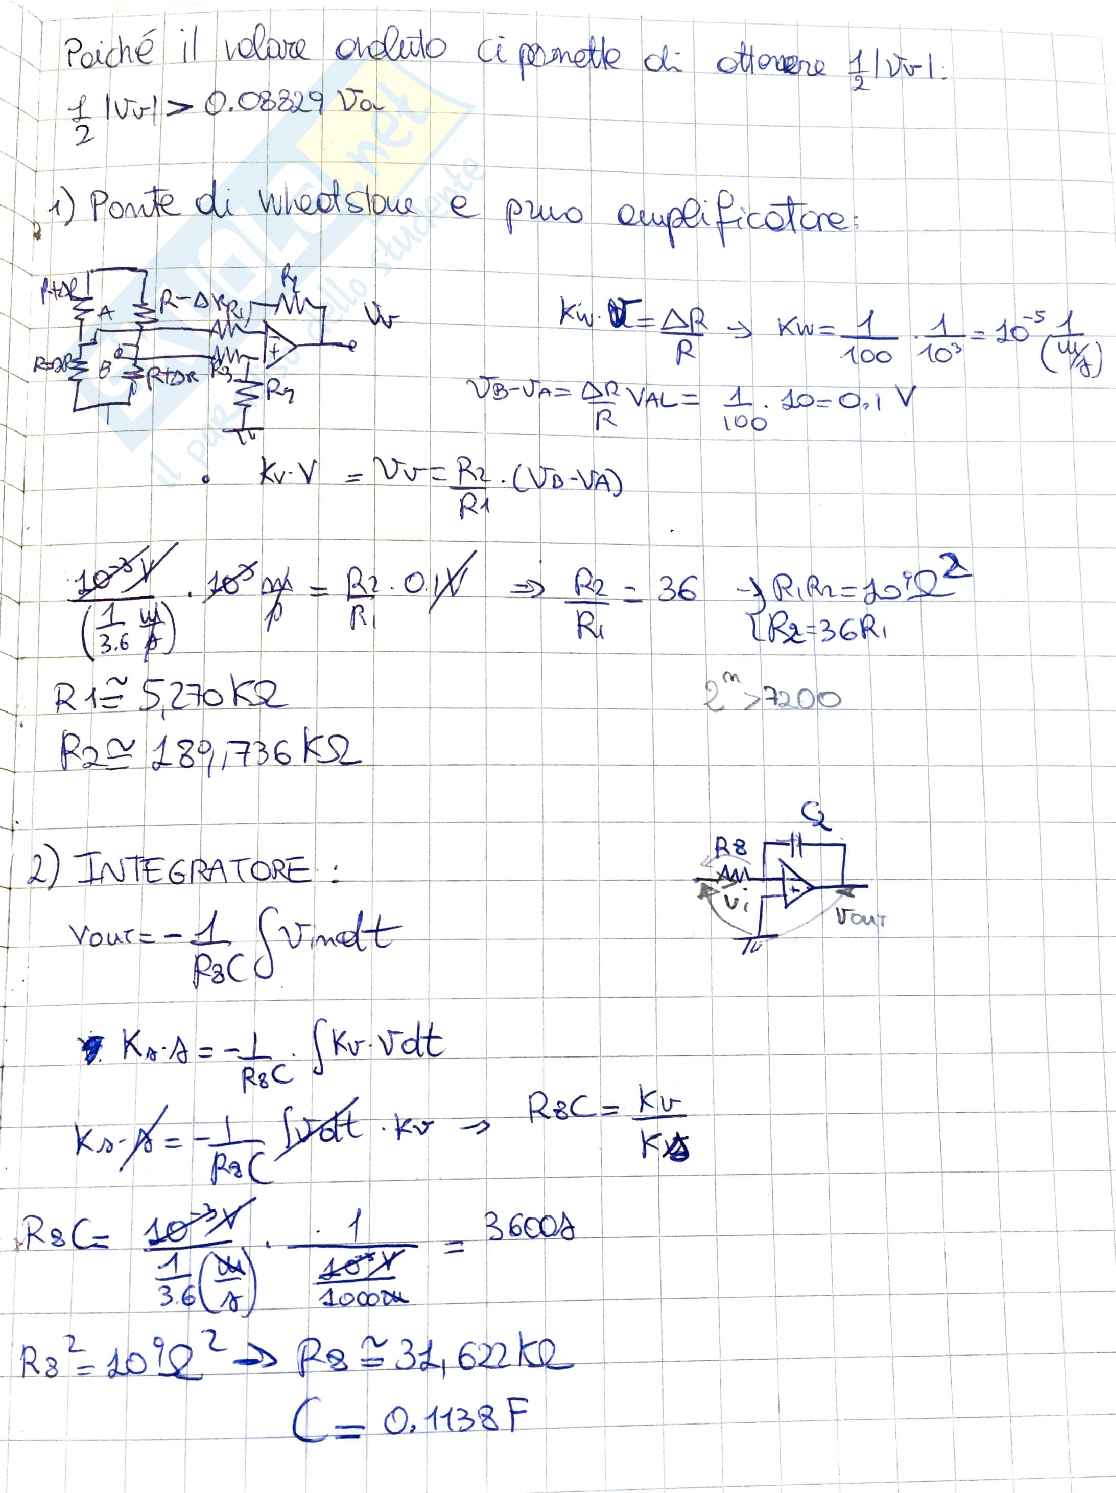 Poiché il valore assoluto ci permette di ottenere 1/2 |Vv|:
1/2 |Vv| > 0.08329 Va
1) Ponte di Wheatstone e primo amplificatore:
R+ΔR A R-ΔR R1 R2 Vv
R-ΔR B R+ΔR R3 R4
Kw·V = ΔR/R → Kw = 1/100 · 1/10³ = 10⁻⁵ 1/(m/s)
VB-VA = ΔR/R VAL = 1/100 · 10 = 0,1 V
Kv·V = Vv = R2/R1 · (VB-VA)
10⁻³V/(1/3.6 m/s) · 10³ m/s = R2/R1 · 0.1V ⇒ R2/R1 = 36 → { R1R2 = 10⁹Ω²
R2 = 36R1
R1 ≅ 5,270 KΩ
2ⁿ > 7200
R2 ≅ 189,736 KΩ
2) INTEGRATORE:
R8 Vi Vout
Vout = - 1/R8C ∫ Vin dt
Ks·s = - 1/R8C · ∫ Kv·V dt
Ks·s = - 1/R8C ∫Vdt · Kv → R8C = Kv/Ks
R8C = 10⁻³V/(1/3.6 (m/s)) · 1/(10⁻³V/1000m) = 3600s
R8² = 10⁹Ω² → R8 ≅ 31,622 KΩ
C = 0,1138 F